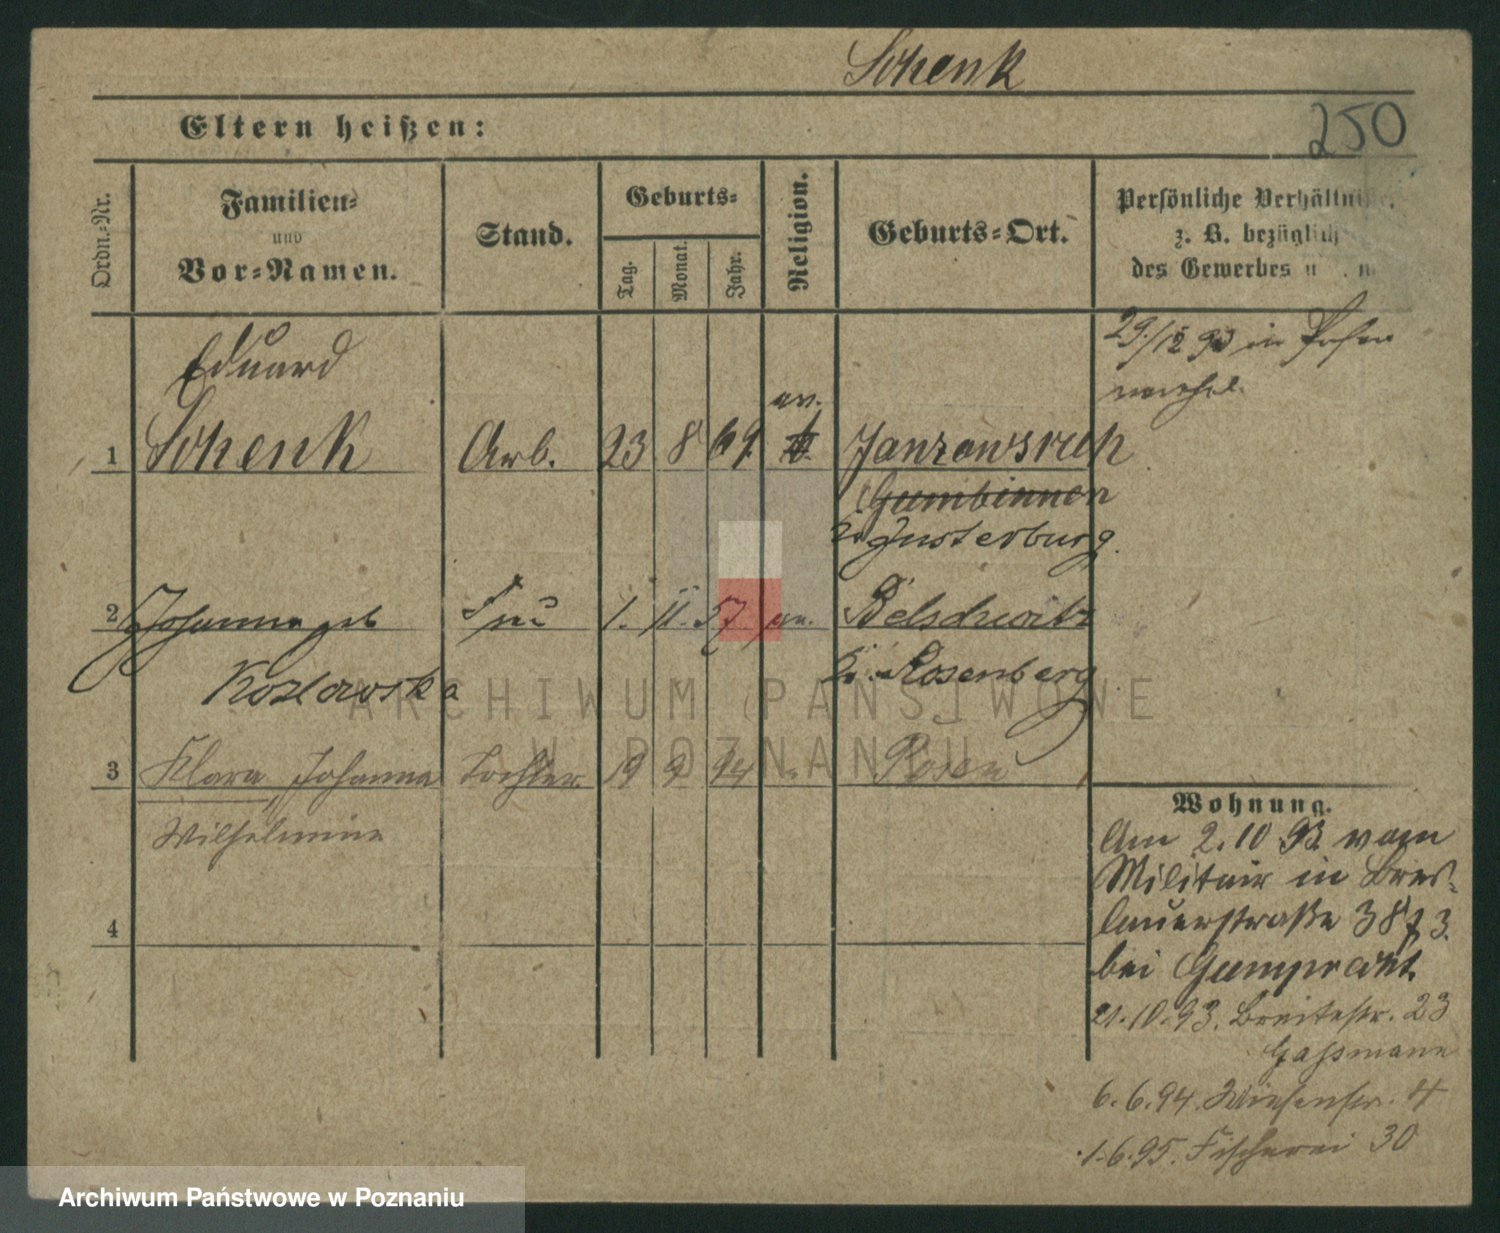 Schenk
Eltern heißen:
250
Ordn.-Nr.
Familien-
und
Vor-Namen.
Stand.
Geburts-
Tag.
Monat.
Jahr.
Religion.
Geburts-Ort.
Persönliche Verhältnisse,
z. B. bezüglich
des Gewerbes
Eduard
1 Schenk Arb. 23 8 69. ev.
Gumbinnen
Kr. Insterburg.
29/12 93 in Posen
verehel.
2 Johanna geb Frau 1. 11. 57 ev. Belschwitz
Kozlowska Kr. Rosenberg
3 Klara, Johanna Tochter 19 9 94 " Posen
Wilhelmine
4
Wohnung.
Am 2.10 93 vom
Militair in Bres-
lauerstraße 38 3.
bei Gumprecht.
21.10.93. Breitestr. 23
Gassmann
6.6.94. Wiesenstr. 4
1.6.95. Fischerei 30
ARCHIWUM PAŃSTWOWE
W POZNANIU
Archiwum Państwowe w Poznaniu